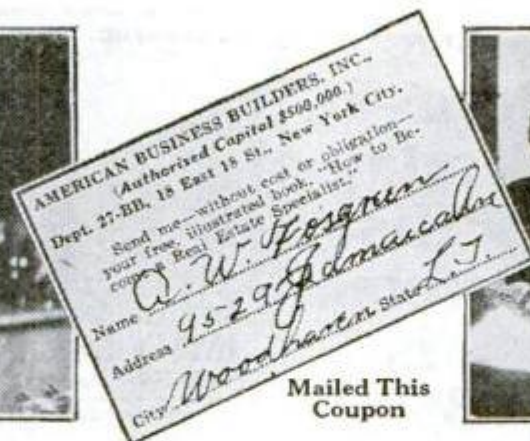 AMERICAN BUSINESS BUILDERS, INC.,
(Authorized Capital $500,000.)
Dept. 27-BB, 18 East 18 St., New York City.
Send me—without cost or obligation—
your free, illustrated book, "How to Be-
come a Real Estate Specialist."
Name A. W. Fosgreen
Address 95-29 Jamaica Av
City Woodhaven State L.I.
Mailed This
Coupon